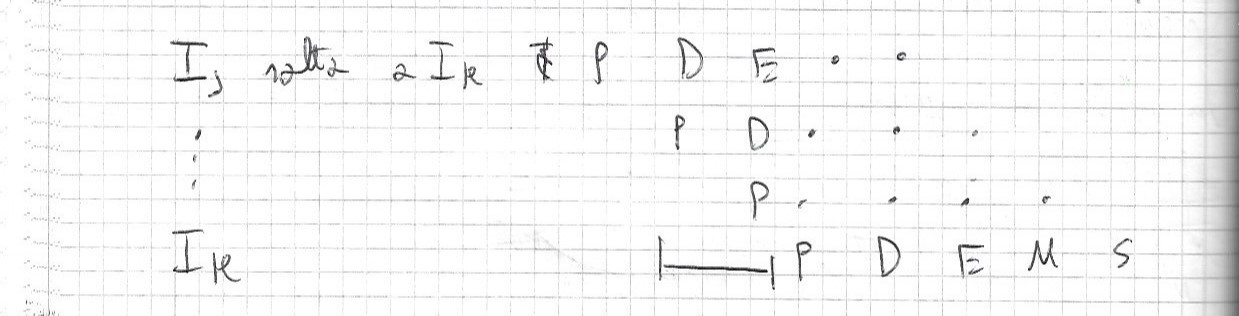 I_j salta a I_k P D E . .
P D . . .
P . . . .
I_k P D E M S